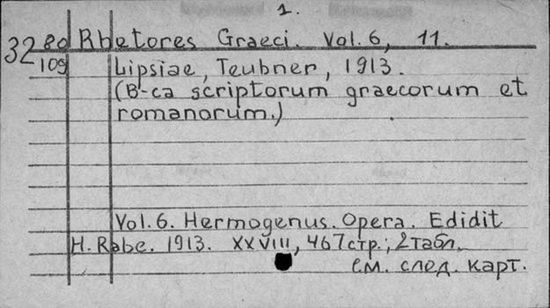 1.
32 80 Rhetores Graeci. Vol. 6, 11.
109 Lipsiae, Teubner, 1913.
(B-ca scriptorum graecorum et
romanorum.)
Vol. 6. Hermogenus. Opera. Edidit
H. Rabe. 1913. XXVIII, 467 стр.; 2 табл.
см. след. карт.